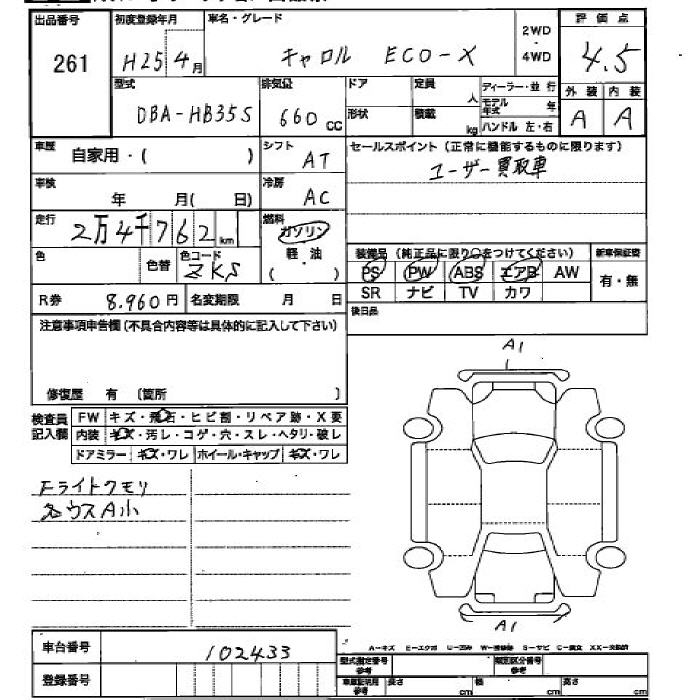 出品番号 初度登録年月 車名・グレード 2WD・4WD 評価点
261 H25 4月 キャロル ECO-X 4.5
型式 排気量 ドア 定員 人 ディーラー・並行 外装 内装
DBA-HB35S 660cc 形状 積載 kg モデル年式 年 A A
ハンドル 左・右
車歴 自家用・( ) シフト AT セールスポイント(正常に機能するものに限ります)
ユーザー買取車
車検 年 月( 日) 冷房 AC
走行 2万4千762km 燃料 ガソリン
軽・油
( )
色 色替 色コード ZKS
装備品(純正品に限り○をつけてください) 新車保証書
PS PW ABS エアB AW 有・無
SR ナビ TV カワ
R券 8.960円 名変期限 月 日 後日品
注意事項申告欄(不具合内容等は具体的に記入して下さい)
修復歴 有 〔箇所 〕
A1
検査員記入欄 FW キズ・飛石・ヒビ割・リペア跡・X要
内装 キズ・汚レ・コゲ・穴・スレ・ヘタリ・破レ
ドアミラー キズ・ワレ ホイール・キャップ キズ・ワレ
Fライトクモリ
各ウスA小
A1
A-キズ E-エクボ U-凹み W-補修跡 S-サビ C-腐食 XX-交換済
車台番号 102433
型式指定番号 参考 類別区分番号 参考
登録番号 車庫証明用 参考 長さ cm 幅 cm 高さ cm